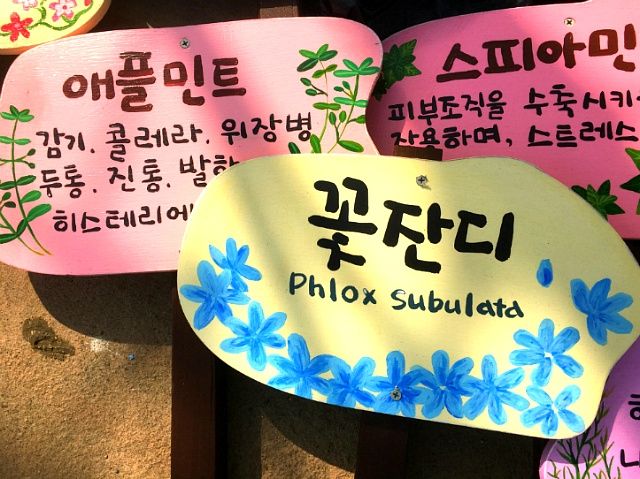 애플민트
감기. 콜레라. 위장병
두통. 진통. 발한
히스테리에
스피아민
피부조직을 수축시키
작용하며, 스트레스
꽃잔디
Phlox Subulata